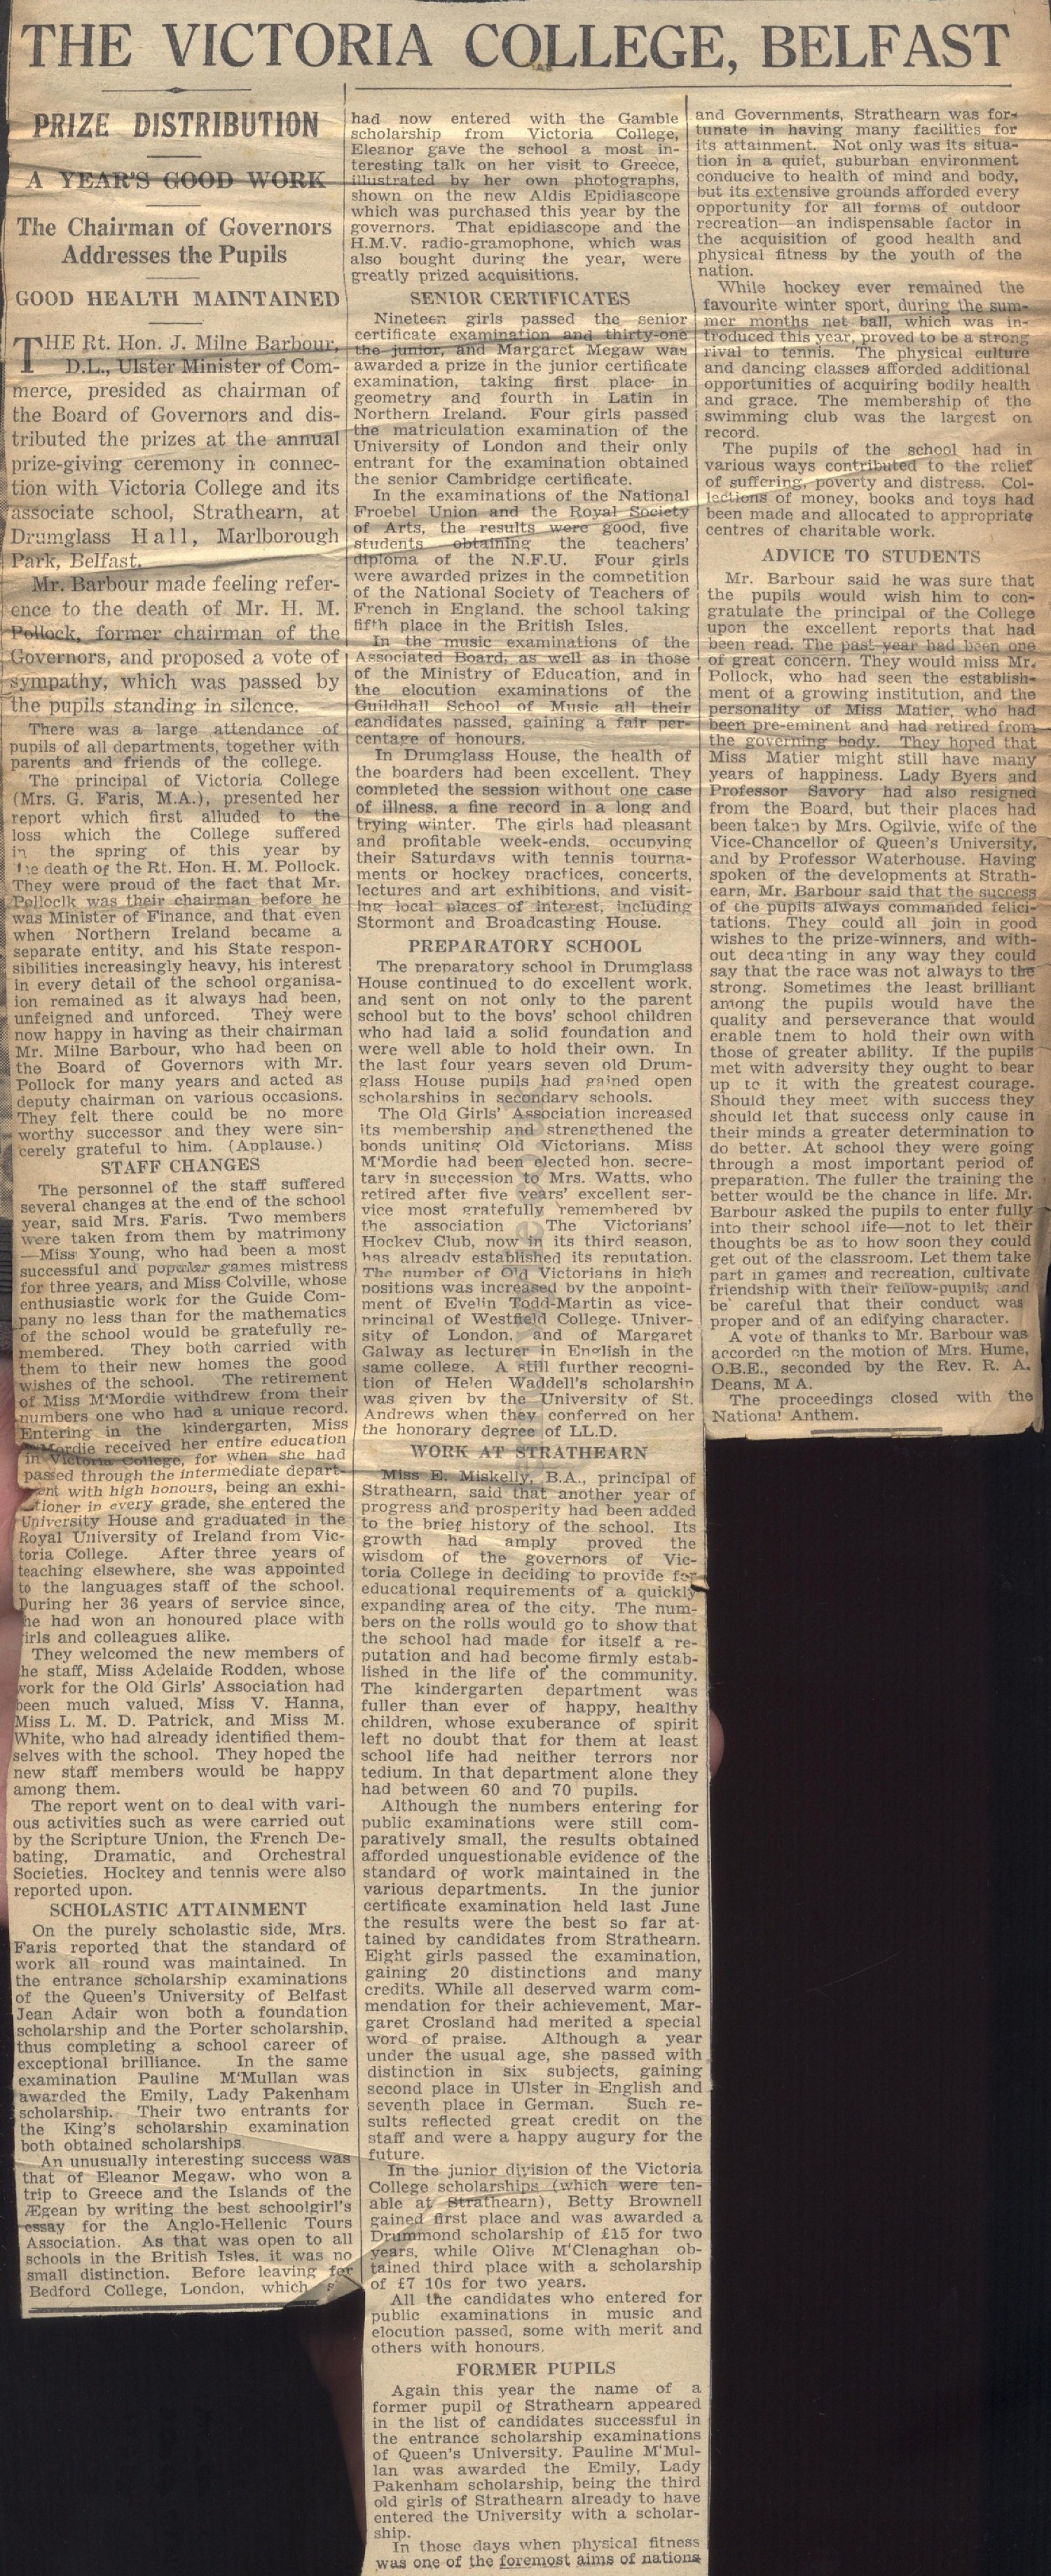 THE VICTORIA COLLEGE, BELFAST
PRIZE DISTRIBUTION
A YEAR'S GOOD WORK
The Chairman of Governors
Addresses the Pupils
GOOD HEALTH MAINTAINED
THE Rt. Hon. J. Milne Barbour,
D.L., Ulster Minister of Com-
merce, presided as chairman of
the Board of Governors and dis-
tributed the prizes at the annual
prize-giving ceremony in connec-
tion with Victoria College and its
associate school, Strathearn, at
Drumglass Hall, Marlborough
Park, Belfast.
Mr. Barbour made feeling refer-
ence to the death of Mr. H. M.
Pollock, former chairman of the
Governors, and proposed a vote of
sympathy, which was passed by
the pupils standing in silence.
There was a large attendance of
pupils of all departments, together with
parents and friends of the college.
The principal of Victoria College
(Mrs. G. Faris, M.A.), presented her
report which first alluded to the
loss which the College suffered
in the spring of this year by
the death of the Rt. Hon. H. M. Pollock.
They were proud of the fact that Mr.
Polloclk was their chairman before he
was Minister of Finance, and that even
when Northern Ireland became a
separate entity, and his State respon-
sibilities increasingly heavy, his interest
in every detail of the school organisa-
ion remained as it always had been,
unfeigned and unforced. They were
now happy in having as their chairman
Mr. Milne Barbour, who had been on
the Board of Governors with Mr.
Pollock for many years and acted as
deputy chairman on various occasions.
They felt there could be no more
worthy successor and they were sin-
cerely grateful to him. (Applause.)
STAFF CHANGES
The personnel of the staff suffered
several changes at the end of the school
year, said Mrs. Faris. Two members
were taken from them by matrimony
—Miss Young, who had been a most
successful and popular games mistress
for three years, and Miss Colville, whose
enthusiastic work for the Guide Com-
pany no less than for the mathematics
of the school would be gratefully re-
membered. They both carried with
them to their new homes the good
wishes of the school. The retirement
of Miss M'Mordie withdrew from their
numbers one who had a unique record.
Entering in the kindergarten, Miss
Mordie received her entire education
in Victoria College, for when she had
passed through the intermediate depart-
ent with high honours, being an exhi-
tioner in every grade, she entered the
University House and graduated in the
Royal University of Ireland from Vic-
toria College. After three years of
teaching elsewhere, she was appointed
to the languages staff of the school.
During her 36 years of service since,
he had won an honoured place with
irls and colleagues alike.
They welcomed the new members of
he staff, Miss Adelaide Rodden, whose
work for the Old Girls' Association had
been much valued, Miss V. Hanna,
Miss L. M. D. Patrick, and Miss M.
White, who had already identified them-
selves with the school. They hoped the
new staff members would be happy
among them.
The report went on to deal with vari-
ous activities such as were carried out
by the Scripture Union, the French De-
bating, Dramatic, and Orchestral
Societies. Hockey and tennis were also
reported upon.
SCHOLASTIC ATTAINMENT
On the purely scholastic side, Mrs.
Faris reported that the standard of
work all round was maintained. In
the entrance scholarship examinations
of the Queen's University of Belfast
Jean Adair won both a foundation
scholarship and the Porter scholarship,
thus completing a school career of
exceptional brilliance. In the same
examination Pauline M'Mullan was
awarded the Emily, Lady Pakenham
scholarship. Their two entrants for
the King's scholarship examination
both obtained scholarships
An unusually interesting success was
that of Eleanor Megaw, who won a
trip to Greece and the Islands of the
Ægean by writing the best schoolgirl's
essay for the Anglo-Hellenic Tours
Association. As that was open to all
schools in the British Isles, it was no
small distinction. Before leaving for
Bedford College, London, which s
had now entered with the Gamble
scholarship from Victoria College,
Eleanor gave the school a most in-
teresting talk on her visit to Greece,
illustrated by her own photographs,
shown on the new Aldis Epidiascope
which was purchased this year by the
governors. That epidiascope and the
H.M.V. radio-gramophone, which was
also bought during the year, were
greatly prized acquisitions.
SENIOR CERTIFICATES
Nineteen girls passed the senior
certificate examination and thirty-one
the junior, and Margaret Megaw was
awarded a prize in the junior certificate
examination, taking first place in
geometry and fourth in Latin in
Northern Ireland. Four girls passed
the matriculation examination of the
University of London and their only
entrant for the examination obtained
the senior Cambridge certificate.
In the examinations of the National
Froebel Union and the Royal Society
of Arts, the results were good, five
students obtaining the teachers'
diploma of the N.F.U. Four girls
were awarded prizes in the competition
of the National Society of Teachers of
French in England, the school taking
fifth place in the British Isles.
In the music examinations of the
Associated Board, as well as in those
of the Ministry of Education, and in
the elocution examinations of the
Guildhall School of Music all their
candidates passed, gaining a fair per-
centage of honours.
In Drumglass House, the health of
the boarders had been excellent. They
completed the session without one case
of illness, a fine record in a long and
trying winter. The girls had pleasant
and profitable week-ends, occupying
their Saturdays with tennis tourna-
ments or hockey practices, concerts,
lectures and art exhibitions, and visit-
ing local places of interest, including
Stormont and Broadcasting House.
PREPARATORY SCHOOL
The preparatory school in Drumglass
House continued to do excellent work,
and sent on not only to the parent
school but to the boys' school children
who had laid a solid foundation and
were well able to hold their own. In
the last four years seven old Drum-
glass House pupils had gained open
scholarships in secondary schools.
The Old Girls' Association increased
its membership and strengthened the
bonds uniting Old Victorians. Miss
M'Mordie had been elected hon. secre-
tary in succession to Mrs. Watts, who
retired after five years' excellent ser-
vice most gratefully remembered by
the association The Victorians'
Hockey Club, now in its third season,
has already established its reputation.
The number of Old Victorians in high
positions was increased by the appoint-
ment of Evelin Todd-Martin as vice-
principal of Westfield College. Univer-
sity of London, and of Margaret
Galway as lecturer in English in the
same college. A still further recogni-
tion of Helen Waddell's scholarship
was given by the University of St.
Andrews when they conferred on her
the honorary degree of LL.D.
WORK AT STRATHEARN
Miss E. Miskelly, B.A., principal of
Strathearn, said that another year of
progress and prosperity had been added
to the brief history of the school. Its
growth had amply proved the
wisdom of the governors of Vic-
toria College in deciding to provide for
educational requirements of a quickly
expanding area of the city. The num-
bers on the rolls would go to show that
the school had made for itself a re-
putation and had become firmly estab-
lished in the life of the community.
The kindergarten department was
fuller than ever of happy, healthy
children, whose exuberance of spirit
left no doubt that for them at least
school life had neither terrors nor
tedium. In that department alone they
had between 60 and 70 pupils.
Although the numbers entering for
public examinations were still com-
paratively small, the results obtained
afforded unquestionable evidence of the
standard of work maintained in the
various departments. In the junior
certificate examination held last June
the results were the best so far at-
tained by candidates from Strathearn.
Eight girls passed the examination,
gaining 20 distinctions and many
credits. While all deserved warm com-
mendation for their achievement, Mar-
garet Crosland had merited a special
word of praise. Although a year
under the usual age, she passed with
distinction in six subjects, gaining
second place in Ulster in English and
seventh place in German. Such re-
sults reflected great credit on the
staff and were a happy augury for the
future.
In the junior division of the Victoria
College scholarships (which were ten-
able at Strathearn), Betty Brownell
gained first place and was awarded a
Drummond scholarship of £15 for two
years, while Olive M'Clenaghan ob-
tained third place with a scholarship
of £7 10s for two years.
All the candidates who entered for
public examinations in music and
elocution passed, some with merit and
others with honours.
FORMER PUPILS
Again this year the name of a
former pupil of Strathearn appeared
in the list of candidates successful in
the entrance scholarship examinations
of Queen's University. Pauline M'Mul-
lan was awarded the Emily, Lady
Pakenham scholarship, being the third
old girls of Strathearn already to have
entered the University with a scholar-
ship.
In those days when physical fitness
was one of the foremost aims of nations
and Governments, Strathearn was for-
tunate in having many facilities for
its attainment. Not only was its situa-
tion in a quiet, suburban environment
conducive to health of mind and body,
but its extensive grounds afforded every
opportunity for all forms of outdoor
recreation—an indispensable factor in
the acquisition of good health and
physical fitness by the youth of the
nation.
While hockey ever remained the
favourite winter sport, during the sum-
mer months net ball, which was in-
troduced this year, proved to be a strong
rival to tennis. The physical culture
and dancing classes afforded additional
opportunities of acquiring bodily health
and grace. The membership of the
swimming club was the largest on
record.
The pupils of the school had in
various ways contributed to the relief
of suffering, poverty and distress. Col-
lections of money, books and toys had
been made and allocated to appropriate
centres of charitable work.
ADVICE TO STUDENTS
Mr. Barbour said he was sure that
the pupils would wish him to con-
gratulate the principal of the College
upon the excellent reports that had
been read. The past year had been one
of great concern. They would miss Mr.
Pollock, who had seen the establish-
ment of a growing institution, and the
personality of Miss Matier, who had
been pre-eminent and had retired from
the governing body. They hoped that
Miss Matier might still have many
years of happiness. Lady Byers and
Professor Savory had also resigned
from the Board, but their places had
been taken by Mrs. Ogilvie, wife of the
Vice-Chancellor of Queen's University,
and by Professor Waterhouse. Having
spoken of the developments at Strath-
earn, Mr. Barbour said that the success
of the pupils always commanded felici-
tations. They could all join in good
wishes to the prize-winners, and with-
out decanting in any way they could
say that the race was not always to the
strong. Sometimes the least brilliant
among the pupils would have the
quality and perseverance that would
enable tnem to hold their own with
those of greater ability. If the pupils
met with adversity they ought to bear
up to it with the greatest courage.
Should they meet with success they
should let that success only cause in
their minds a greater determination to
do better. At school they were going
through a most important period of
preparation. The fuller the training the
better would be the chance in life. Mr.
Barbour asked the pupils to enter fully
into their school life—not to let their
thoughts be as to how soon they could
get out of the classroom. Let them take
part in games and recreation, cultivate
friendship with their fellow-pupils, and
be careful that their conduct was
proper and of an edifying character.
A vote of thanks to Mr. Barbour was
accorded on the motion of Mrs. Hume,
O.B.E., seconded by the Rev. R. A.
Deans, M A.
The proceedings closed with the
National Anthem.